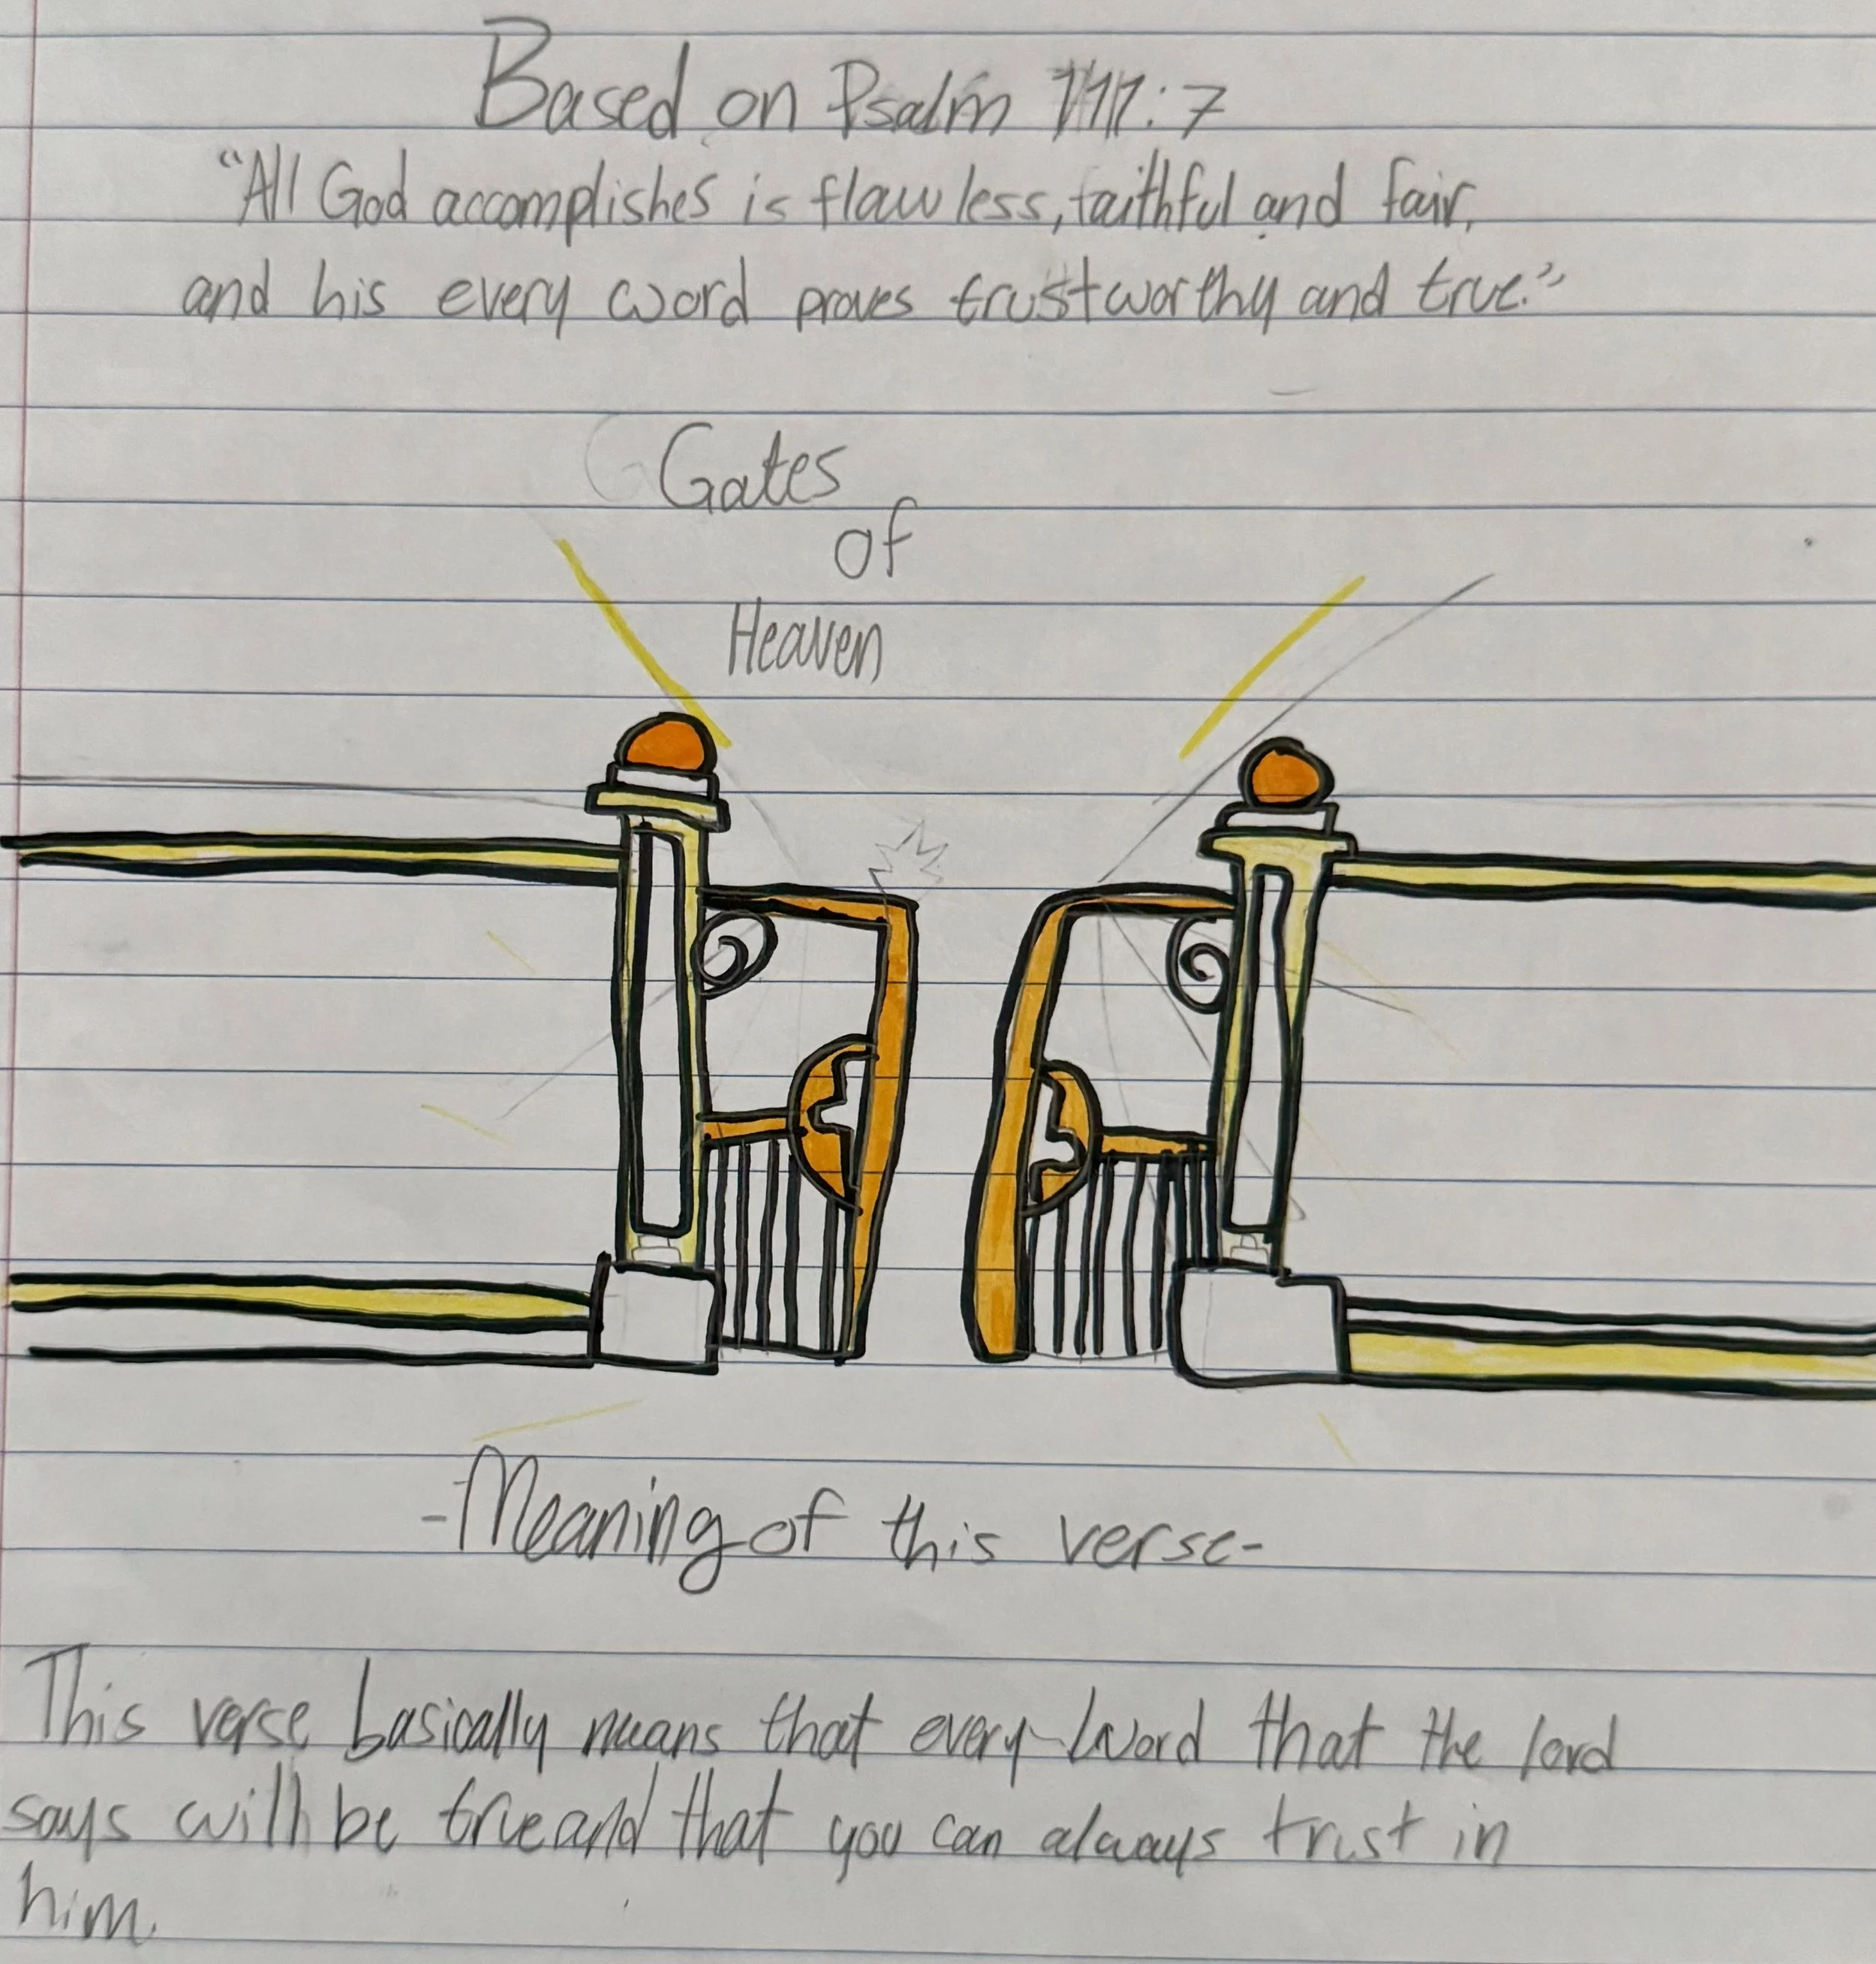 Based on Psalm 111:7
"All God accomplishes is flawless, faithful and fair,
and his every word proves trustworthy and true."
Gates
of
Heaven
-Meaning of this verse-
This verse basically means that every word that the lord
says will be true and that you can always trust in
him.